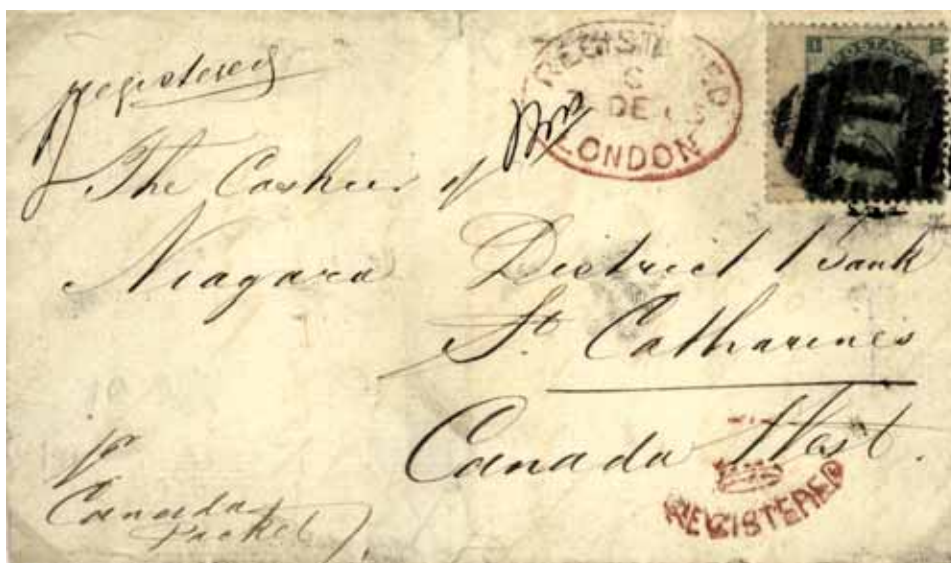 registered
REGISTERED
C
DE
LONDON
POSTAGE
The Cashier of
Niagara District Bank
St. Catharines
Canada West.
REGISTERED
Canada
Packet